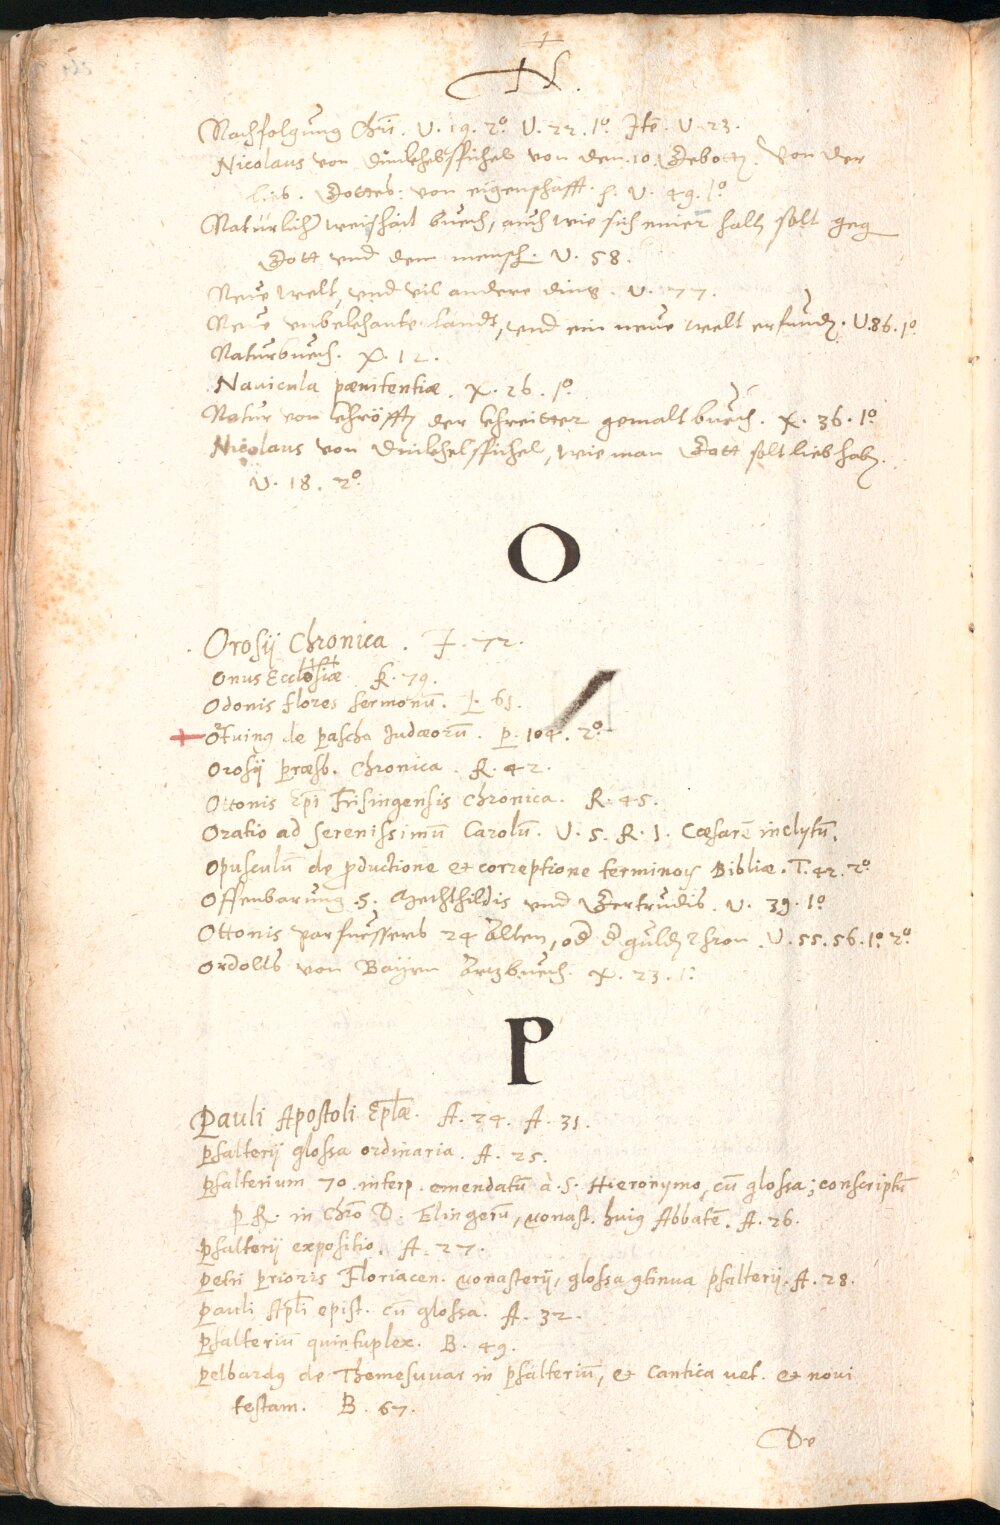 N.
Nachfolgung Chri͞. V. 19. 2º. V. 22. 1º. Ite͞. V. 23.
Nicolaus von Dinkhelspihel von den .10. Gebott. Von der
lieb. Gottes: von eigenschafft. V. 49. 1º
Natürlich weishait buech, auch wie sich einer halt solt geg
Gott und dem mensch. V. 58.
Neue Welt, und vil andere ding. V. 77.
Neue unbekhante landt, und ein neue welt erfund. V. 86. 1º
Naturbuech. X. 12.
Nauicula pænitentiæ. X. 26. 1º.
Natur von der khreitter gemalt buech. X. 36. 1º
Nicolaus von Dinkhelspihel, wie man Gott solt lieb hab.
V. 18. 2º.
O
Orosij Chronica. F. 72.
Onus Ecclesiæ. K. 79.
Odonis flores sermonu͞. L. 61.
+ de Pascha Iudæoru͞. P. 104. 2º.
Orosij Præsb. Chronica. R. 42.
Ottonis Epi͞ Frisingensis Chronica. R. 45.
Oratio ad Serenissimu͞ Carolu͞. V. 5. R. 1. Cæsare͞ inclytu͞.
Opusculu͞ de productione et correptione terminoꝝ Bibliæ. T. 42. 2º
Offenbarung S. Mechthildis und Gertrudis. V. 39. 1º
Ottonis parfuessers 24 Alten, od d̄ guld thron. V. 55. 56. 1º. 2º
Ordolls von Bayrn Artzbuech. X. 23. 1º
P
Pauli Apostoli Eplæ͞. A. 24. A. 31.
Psalterij glossa ordinaria. A. 25.
Psalterium 70. interp. emendatu͞ à S. Hieronymo, cu͞ glossa; conscriptu͞
p R. in Chro͞ D. Elingeru͞, Monast. huiꝰ Abbate͞. A. 26.
Psalterij expositio. A. 27.
Petri Prioris Floriacen. Monasterij, glossa ꝯtinua psalterij. A. 28.
Pauli Apl͞i epist. cu͞ glossa. A. 32.
Psalteriu͞ quintuplex. B. 49.
Pelbardꝰ de Themesuuar in Psalteriu͞, et Cantica uet. et noui
testam. B. 67.
De